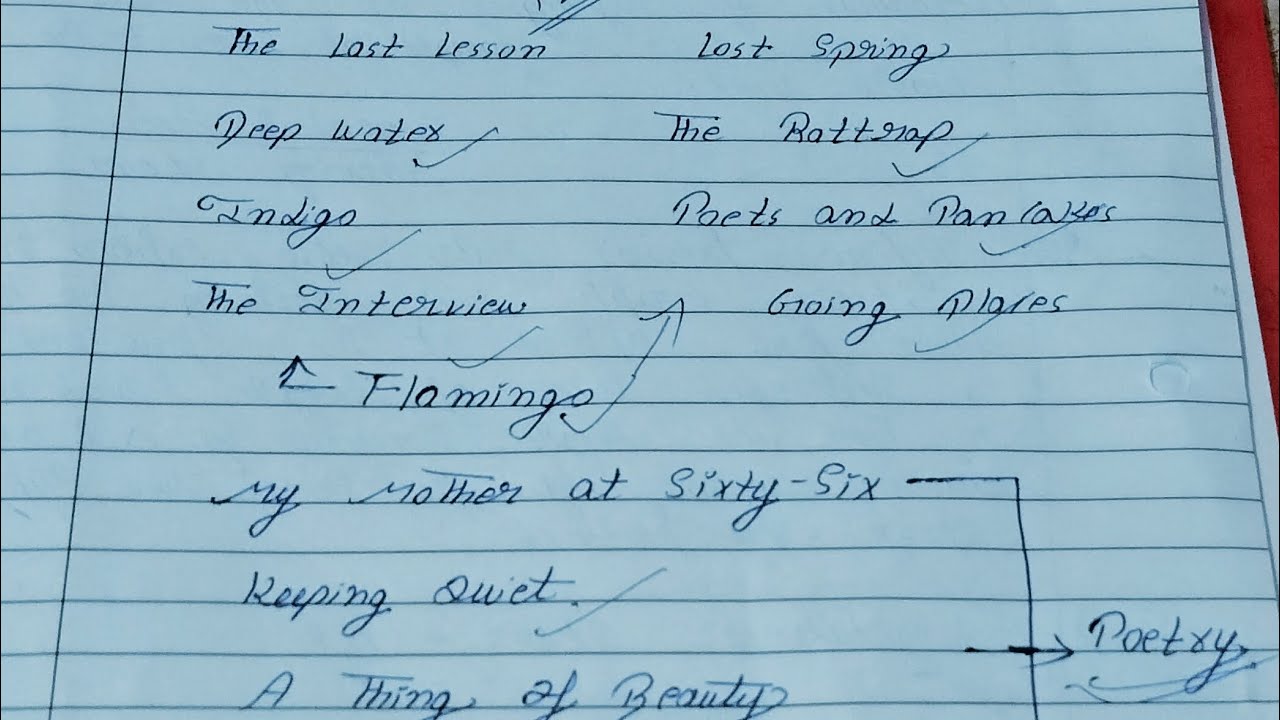 The Last Lesson Lost Spring
Deep Water The Rattrap
Indigo Poets and Pancakes
The Interview Going Places
Flamingo
My Mother at Sixty-Six
Keeping Quiet.
Poetry
A Thing of Beauty